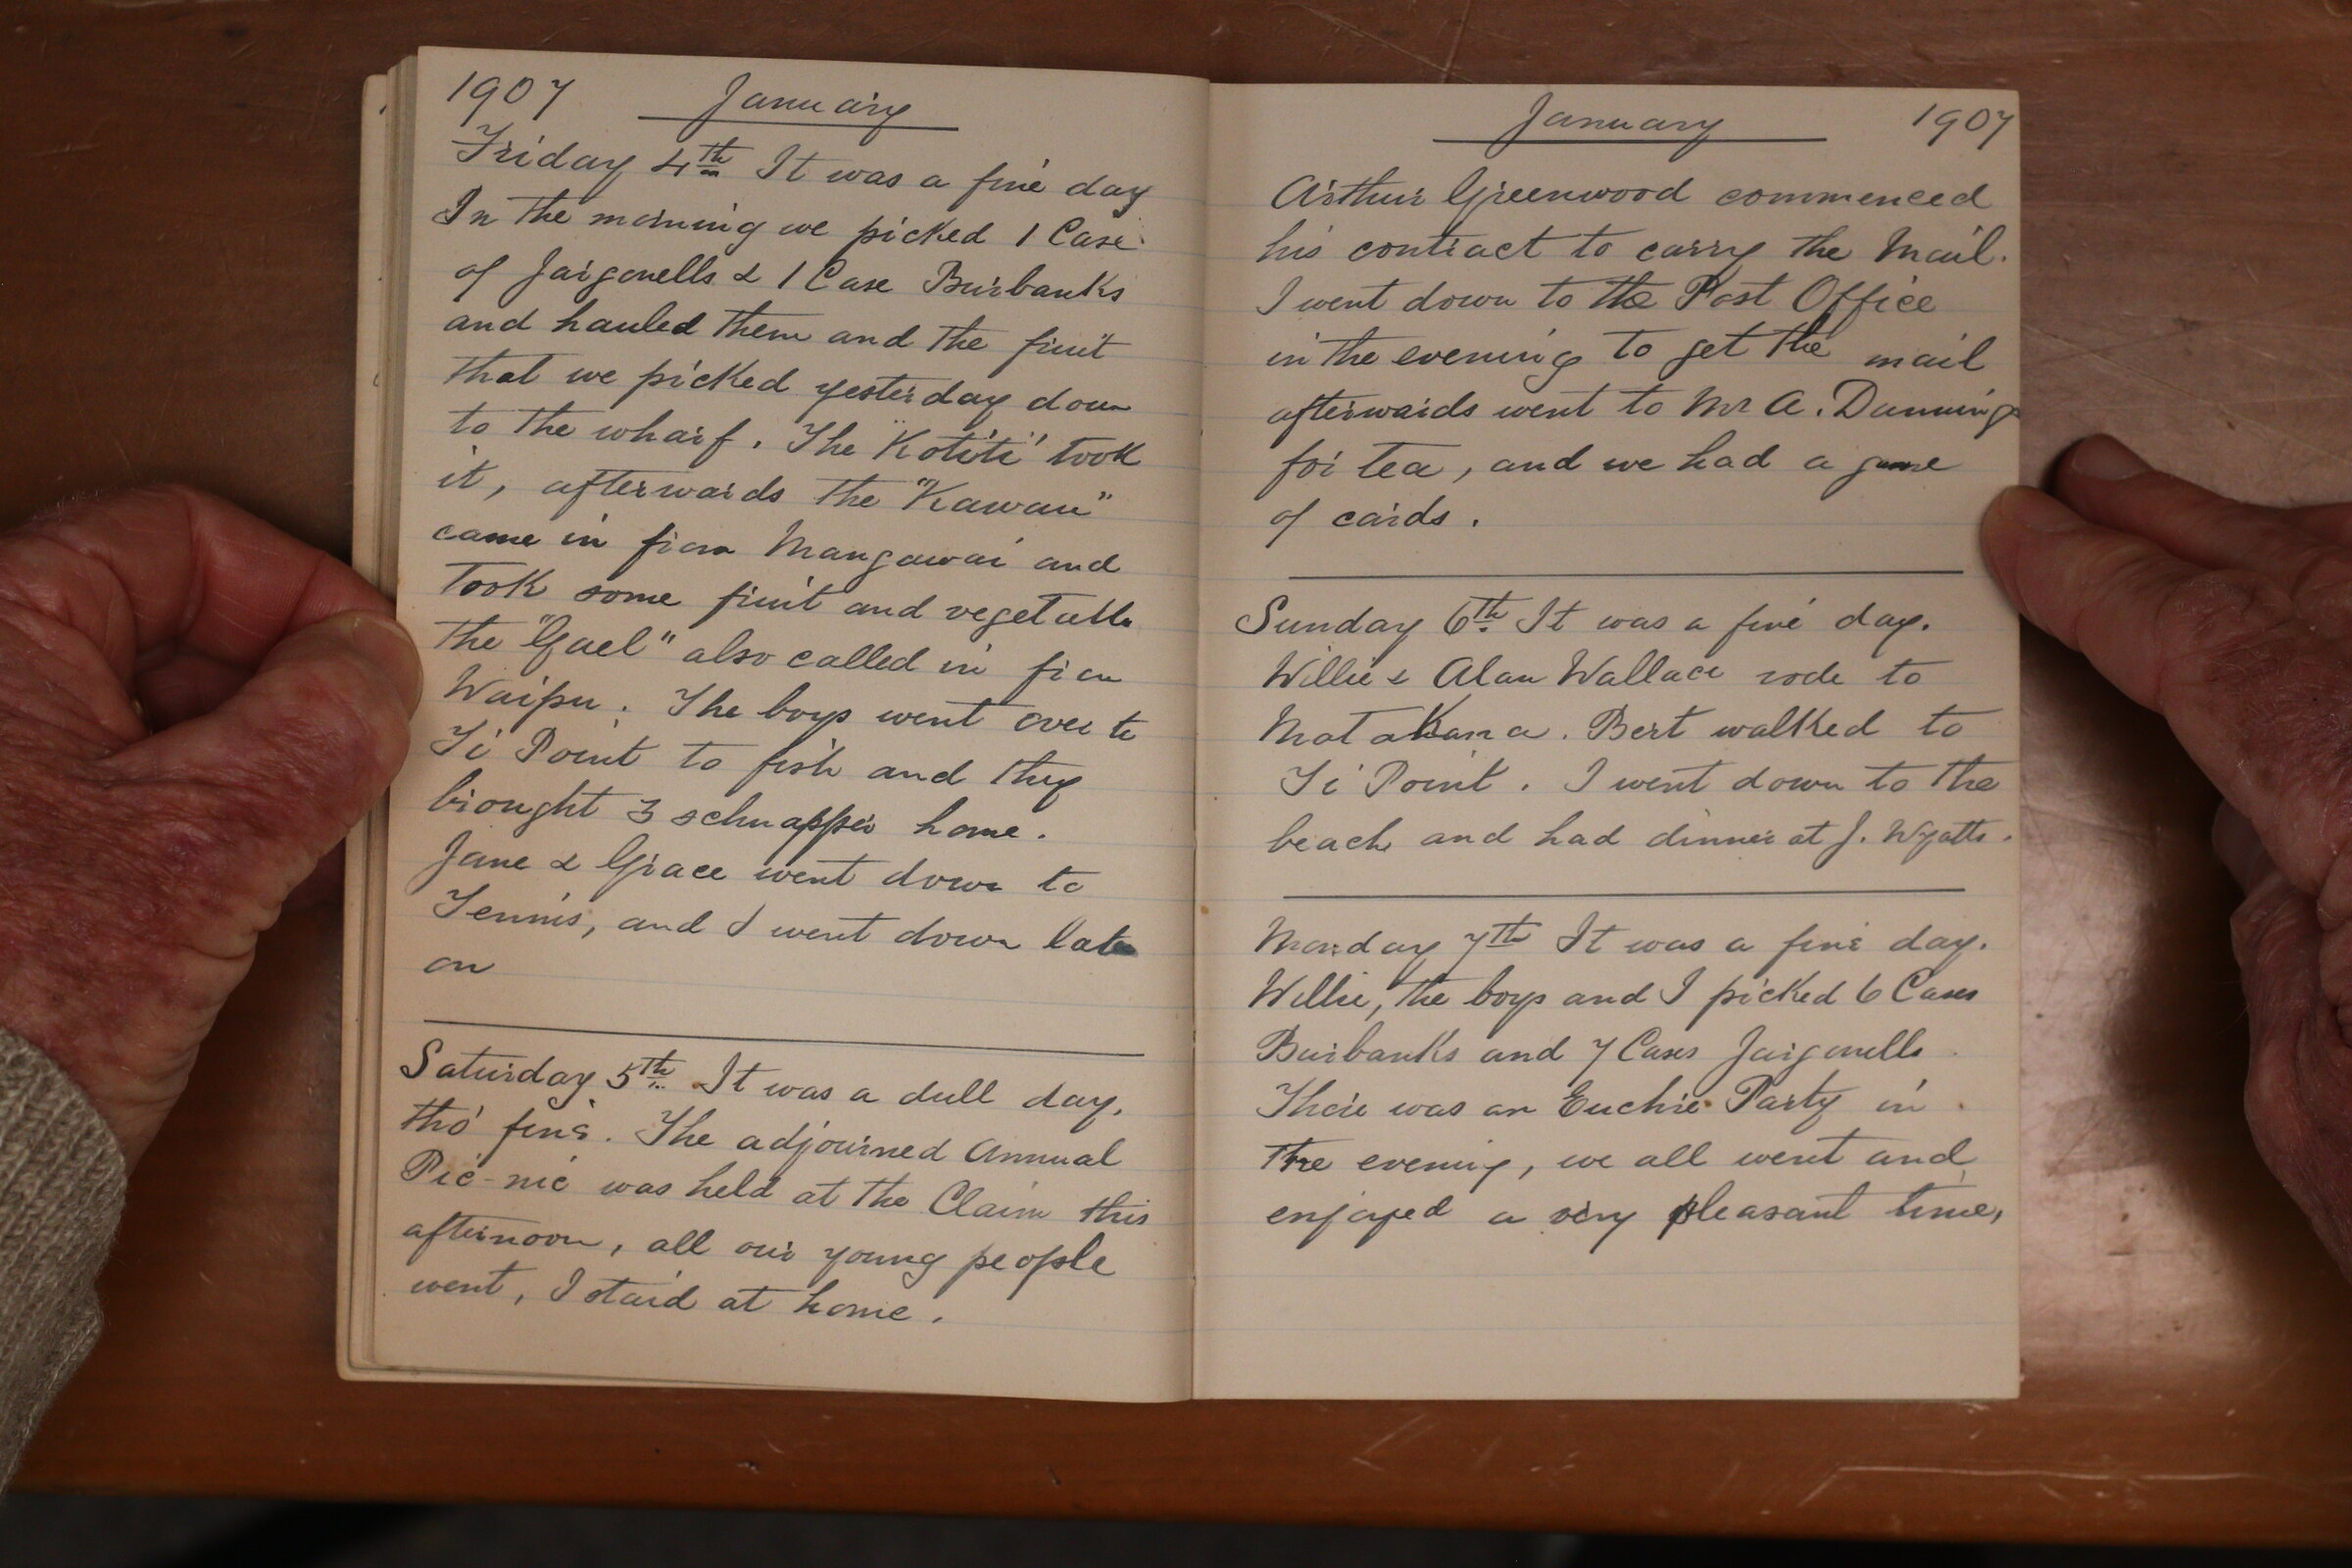 1907 January
Friday 4th It was a fine day
In the morning we picked 1 Case
of Jargonells & 1 Case Burbanks
and hauled them and the fruit
that we picked yesterday down
to the wharf. The "Kotiti" took
it, afterwards the "Kawau"
came in from Mangawai and
took some fruit and vegetable
the "Gael" also called in from
Waipu. The boys went over to
Ti Point to fish and they
brought 3 schnapper home.
Jane & Grace went down to
Tennis, and I went down later
on
Saturday 5th It was a dull day,
tho' fine. The adjourned Annual
Pic-nic was held at the Claim this
afternoon, all our young people
went, I staid at home.
January 1907
Arthur Greenwood commenced
his contract to carry the Mail.
I went down to the Post Office
in the evening to get the mail
afterwards went to Mr A. Dunning
for tea, and we had a game
of cards.
Sunday 6th It was a fine day.
Willie & Alan Wallace rode to
Matakana. Bert walked to
Ti Point. I went down to the
beach and had dinner at J. Wyatts.
Monday 7th It was a fine day.
Willie, the boys and I picked 6 Cases
Burbanks and 7 Cases Jargonells
There was an Euchre Party in
the evening, we all went and
enjoyed a very pleasant time,